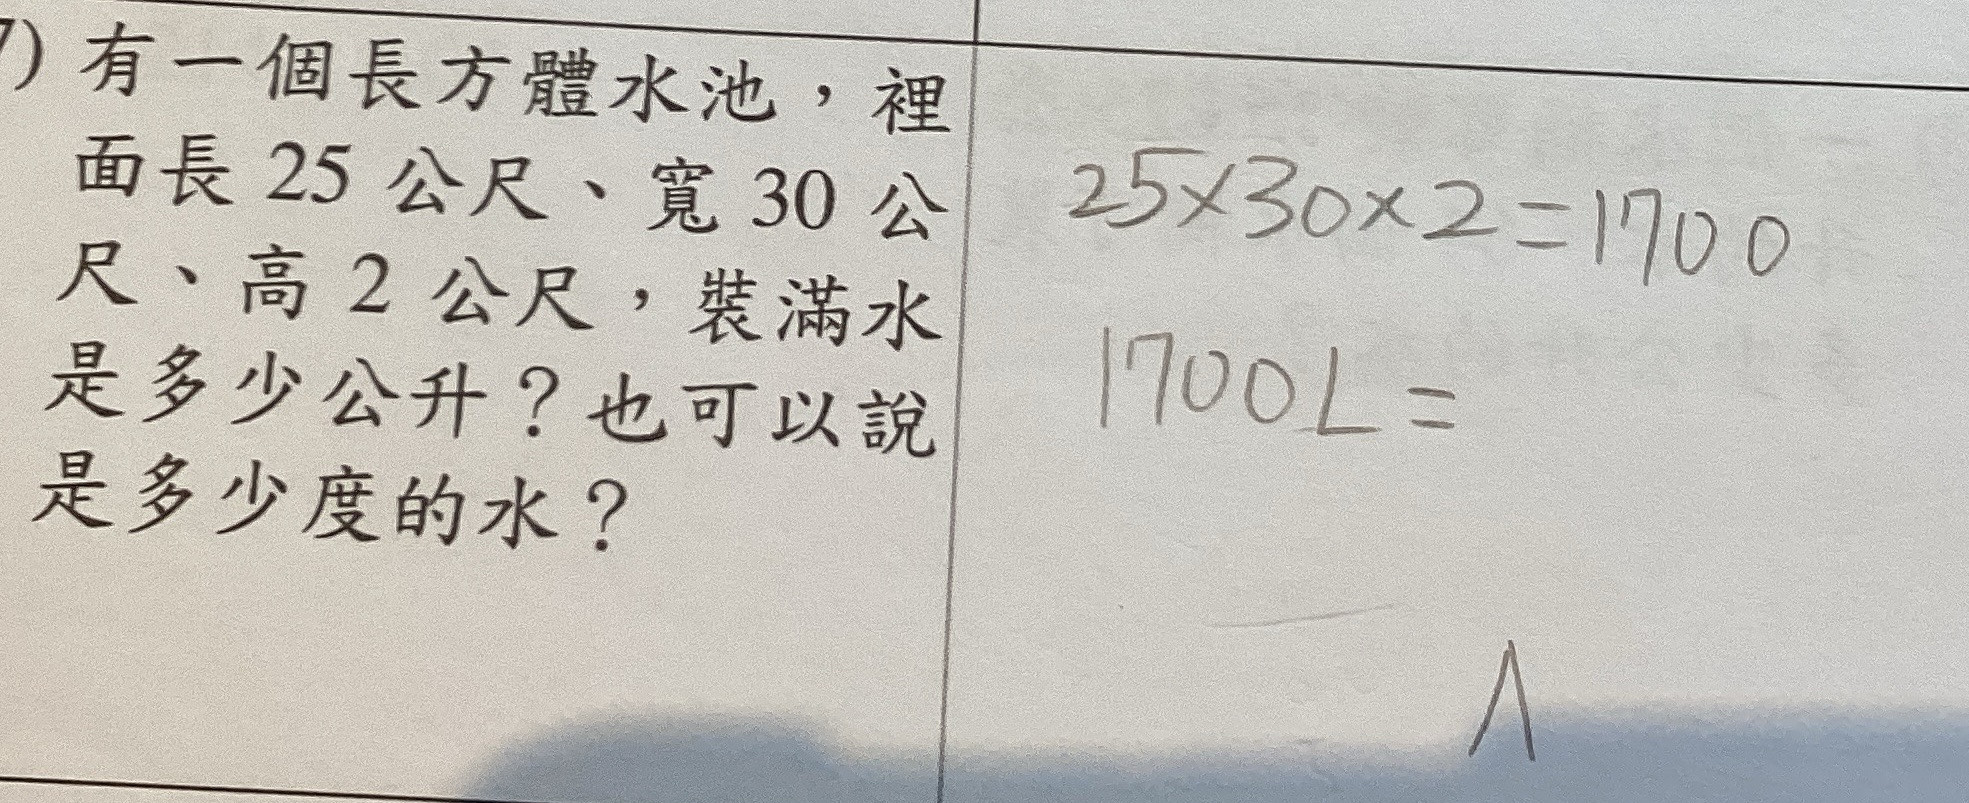 7) 有一個長方體水池，裡
面長 25 公尺、寬 30 公
尺、高 2 公尺，裝滿水
是多少公升？也可以說
是多少度的水？
25×30×2=1700
1700L=
A